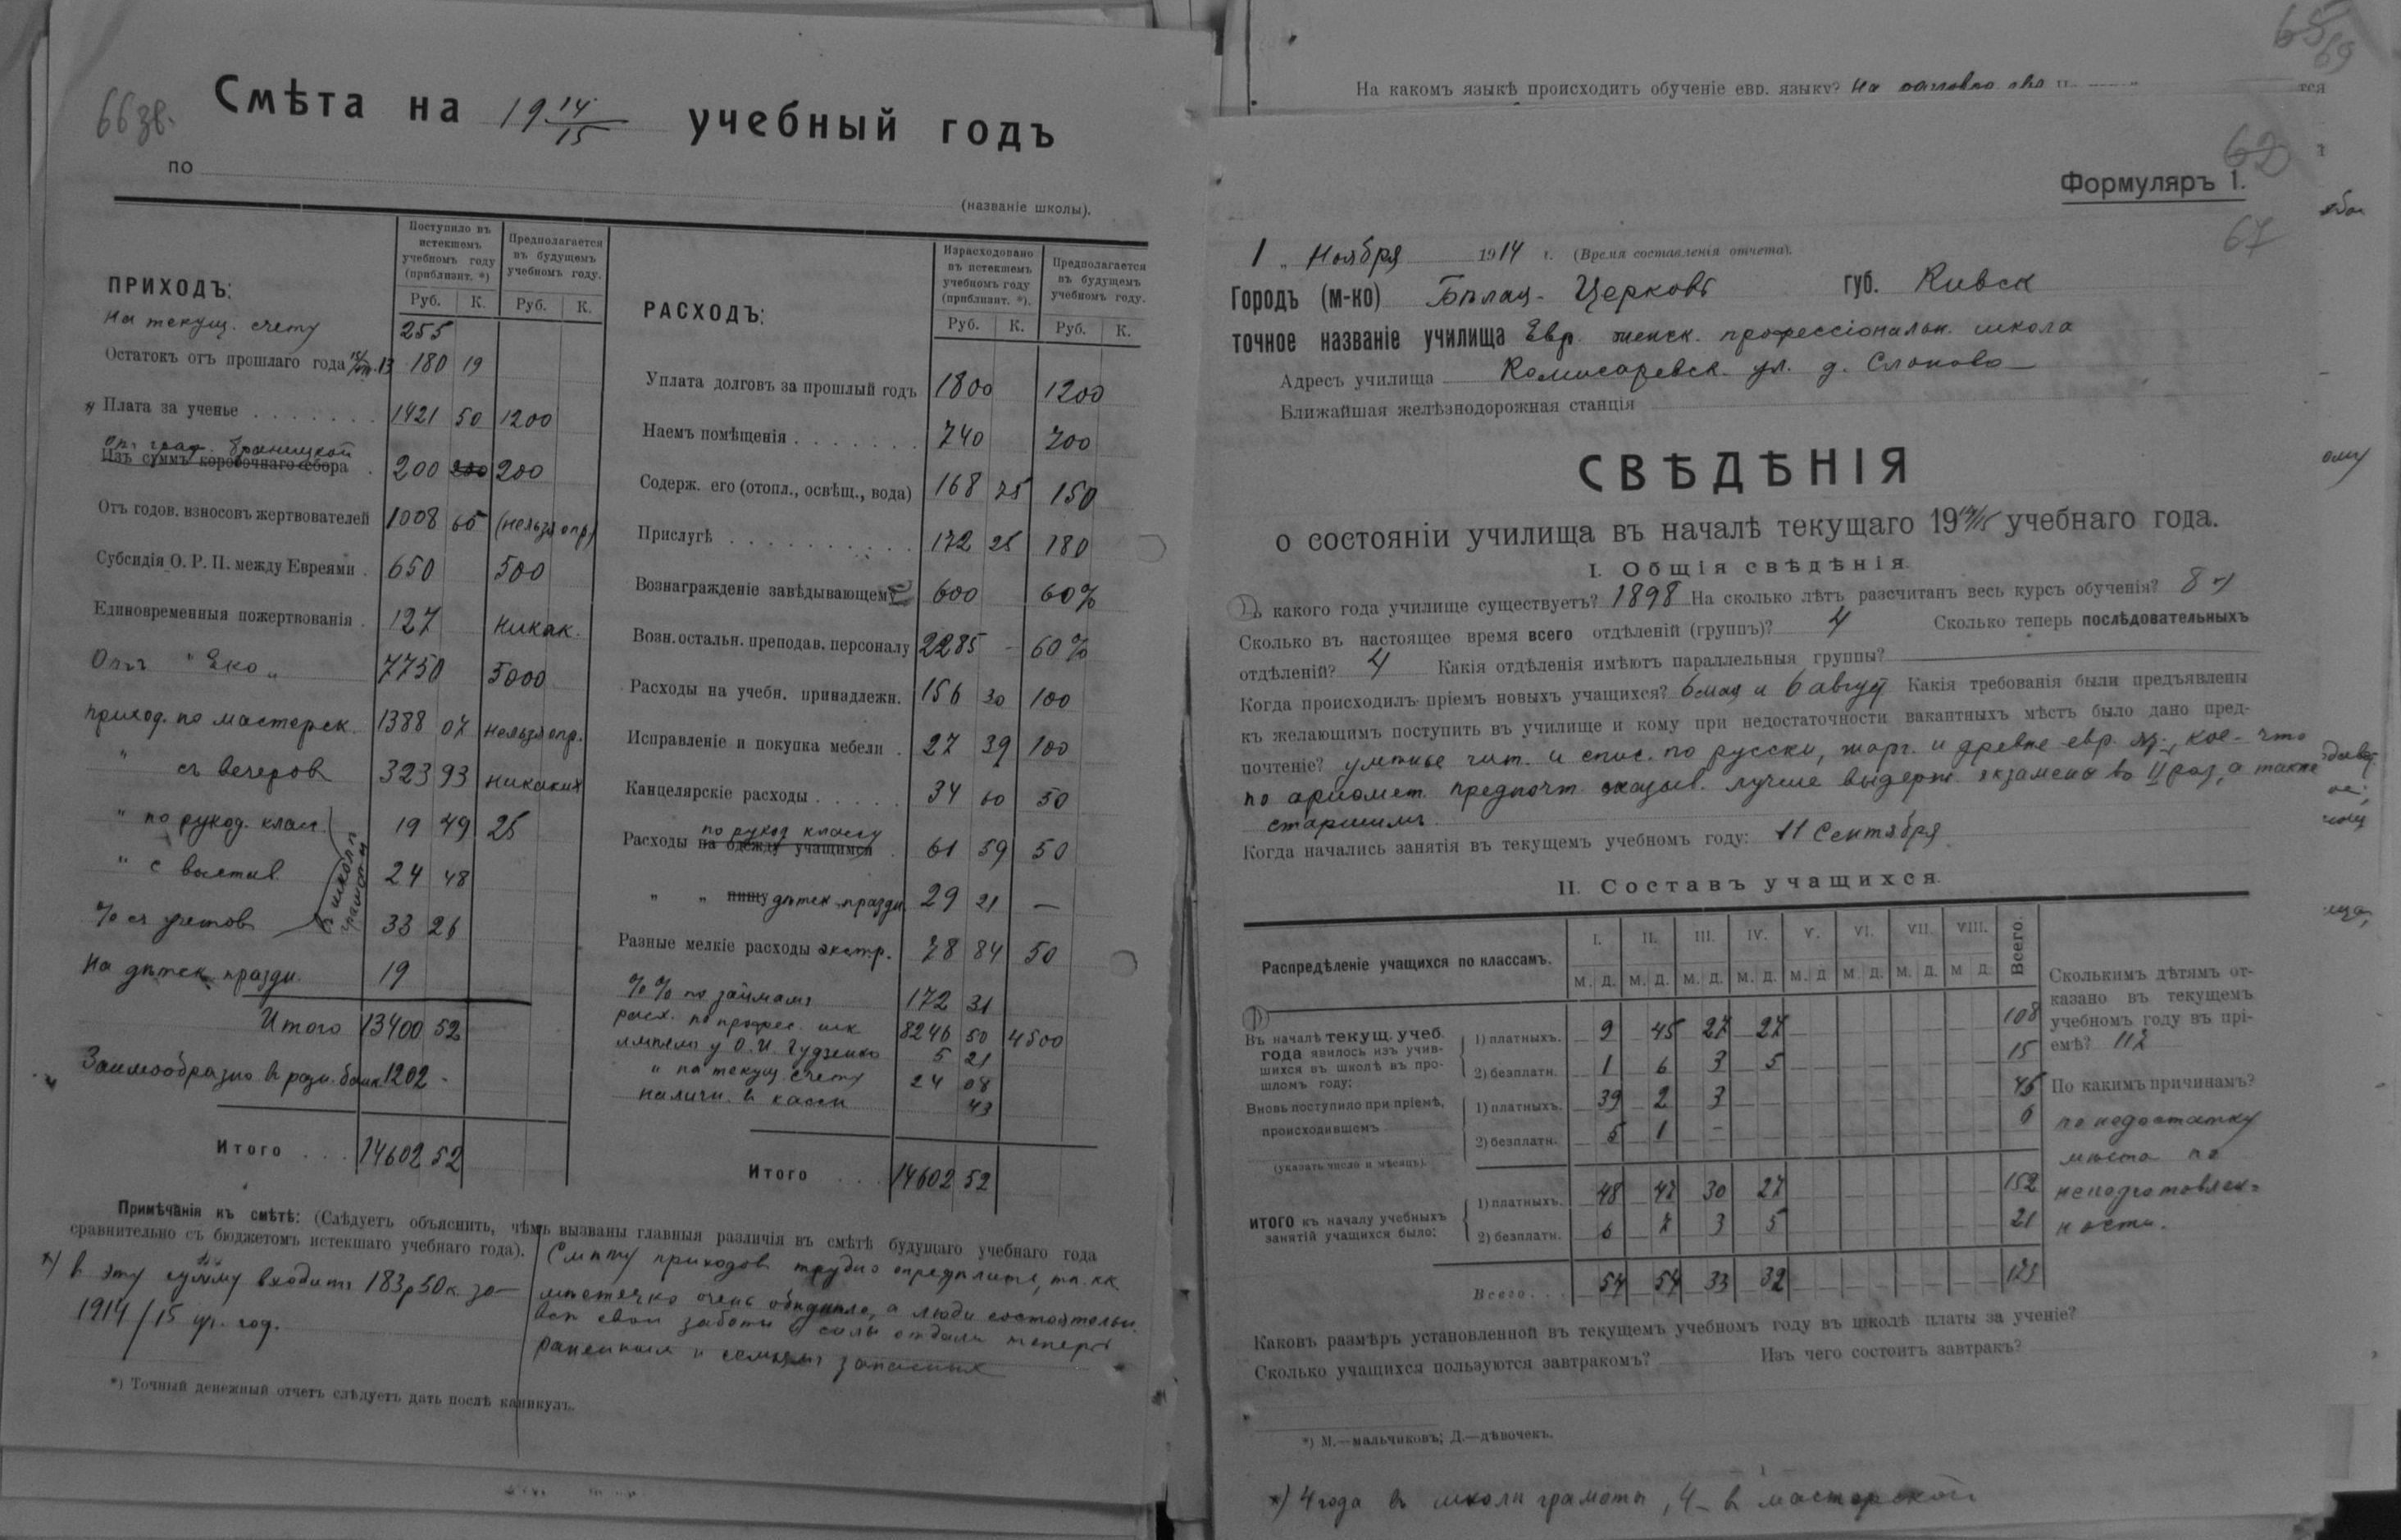 66 зв.
Смѣта на 19 14/15 учебный годъ
по
(названіе школы).
ПРИХОДЪ:
Поступило въ истекшемъ учебномъ году (приблизит. *)
Предполагается въ будущемъ учебномъ году.
Руб. К. Руб. К.
На текущ. счету 255
Остатокъ отъ прошлаго года 180 19
*) Плата за ученье 1421 50 1200
От граф. Браницкой
Изъ суммъ коробочнаго сбора 200 200 200
Отъ годов. взносовъ жертвователей 1008 65 (нельзя опр)
Субсидія О. Р. П. между Евреями 650 500
Единовременныя пожертвованія 127 никак.
Отъ "Еко" 7750 5000
приход. по мастерск. 1388 07 нельзя опр.
" съ вечеров 323 93 никаких
" по рукод. клас. 19 49 25
" с выстав. 24 48
школѣ грамоты
% съ учетов 33 26
На дѣтск. праздн. 19
Итого 13400 52
Заимообразно в разн. банк. 1202 -
Итого 14602 52
РАСХОДЪ:
Израсходовано въ истекшемъ учебномъ году (приблизит. *).
Предполагается въ будущемъ учебномъ году.
Руб. К. Руб. К.
Уплата долговъ за прошлый годъ 1800 1200
Наемъ помѣщенія 740 700
Содерж. его (отопл., освѣщ., вода) 168 75 150
Прислугѣ 172 25 180
Вознагражденіе завѣдывающему 600 60%
Возн. остальн. преподав. персоналу 2285 - 60%
Расходы на учебн. принадлежн. 156 30 100
Исправленіе и покупка мебели 27 39 100
Канцелярскіе расходы 34 60 50
по рукод классу
Расходы на одежду учащимся 61 59 50
" " пищу дѣтск. праздн. 29 21 —
Разные мелкіе расходы экстр. 78 84 50
% % по займамъ 172 31
расх. по профес. шк 8246 50 4500
имѣемъ у О. И. Гудзенко 5 21
" на текущ. счету 24 08
налични. в кассѣ 43
Итого 14602 52
Примѣчанія къ смѣтѣ: (Слѣдуетъ объяснить, чѣмъ вызваны главныя различія въ смѣтѣ будущаго учебнаго года
сравнительно съ бюджетомъ истекшаго учебнаго года).
*) в эту сумму входитъ 183р 50к. за
1914/15 уч. год.
Смѣту приходов трудно опредѣлить, т. как
мѣстечко очень обѣднѣло, а люди состоятельн.
всѣ свои заботы и силы отдали теперь
раненным и семьям запасных
*) Точный денежный отчетъ слѣдуетъ дать послѣ каникулъ.
65
69
На какомъ языкѣ происходитъ обученіе евр. языку? На
62
Формуляръ 1.
67
1 „ Ноября 1914 г. (Время составленія отчета).
Городъ (м-ко) Бѣлая-Церковь губ. Кіевск
точное названіе училища Евр. женск. профессіональн. школа
Адресъ училища Комисаревск. ул. д. Слоново
Ближайшая желѣзнодорожная станція
СВѢДѢНІЯ
о состояніи училища въ началѣ текущаго 1914/15 учебнаго года.
I. Общія свѣдѣнія.
Съ какого года училище существуетъ? 1898 На сколько лѣтъ разсчитанъ весь курсъ обученія? 8 *)
Сколько въ настоящее время всего отдѣленій (группъ)? 4 Сколько теперь послѣдовательныхъ
отдѣленій? 4 Какія отдѣленія имѣютъ параллельныя группы?
Когда происходилъ пріемъ новыхъ учащихся? 6 мая и 6 август Какія требованія были предъявлены
къ желающимъ поступить въ училище и кому при недостаточности вакантныхъ мѣстъ было дано пред-
почтеніе? умѣнье чит. и спис. по русски, жарг. и древне евр. яз., кое-что
по ариѳмет. предпочт. оказыв. лучше выдерж. экзамены во II раз, а также
старшимъ
Когда начались занятія въ текущемъ учебномъ году: 11 Сентября
II. Составъ учащихся.
Распредѣленіе учащихся по классамъ. I. II. III. IV. V. VI. VII. VIII. Всего.
М. Д. М. Д. М. Д. М. Д. М. Д. М. Д. М. Д. М. Д.
Въ началѣ текущ. учеб. года явилось изъ учившихся въ школѣ въ прошломъ году:
1) платныхъ. 9 45 27 27 108
2) безплатн. 1 6 3 5 15
Вновь поступило при пріемѣ, происходившемъ
1) платныхъ. 39 2 3 45
2) безплатн. 5 1 - 6
(указать число и мѣсяцъ).
ИТОГО къ началу учебныхъ занятій учащихся было:
1) платныхъ. 48 47 30 27 152
2) безплатн. 6 7 3 5 21
Всего 54 54 33 32 173
Сколькимъ дѣтямъ от-
казано въ текущемъ
учебномъ году въ прі-
емѣ? 112
По какимъ причинамъ?
по недостатку
мѣста по
неподготовлен-
ности.
Каковъ размѣръ установленной въ текущемъ учебномъ году въ школѣ платы за ученіе?
Сколько учащихся пользуются завтракомъ? Изъ чего состоитъ завтракъ?
*) М.—мальчиковъ; Д.—дѣвочекъ.
*) 4 года в школѣ грамоты, 4 - в мастерской